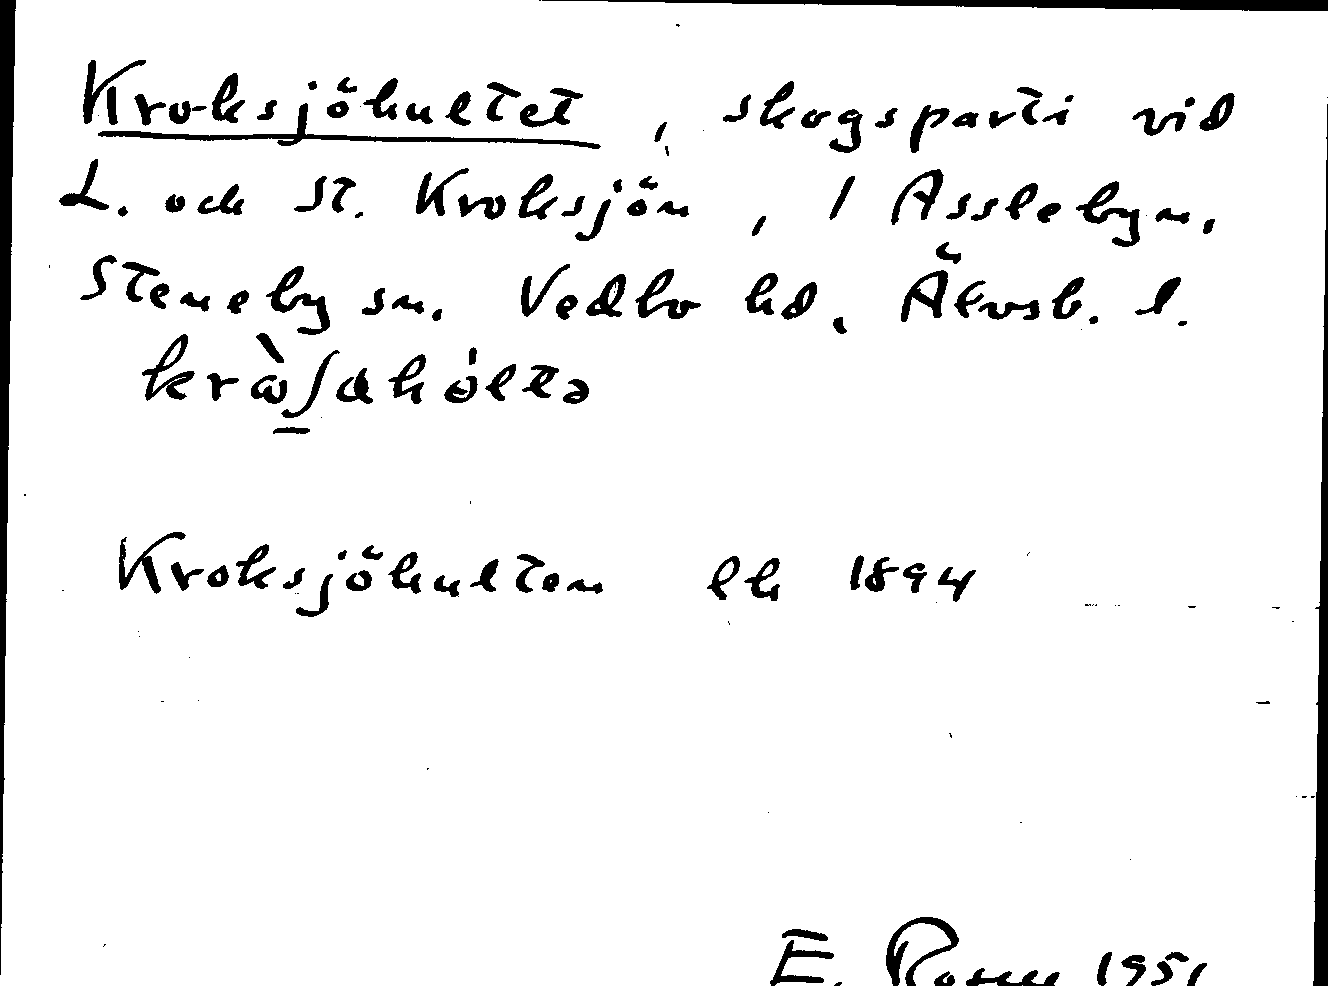 Kroksjöhultet, skogsparti vid
L. och St. Kroksjön, / Asslebyn.
Steneby sn. Vedbo hd. Älvsb. l.
krɷ̀ʃahòltə
Kroksjöhulten lh 1894
E. Rosen 1951